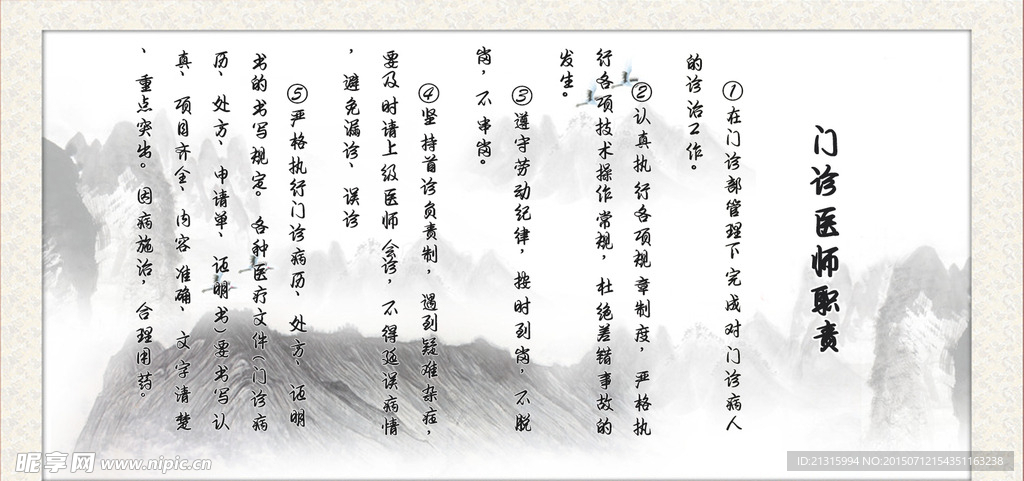 门诊医师职责
①在门诊部管理下完成对门诊病人
的诊治工作。
②认真执行各项规章制度，严格执
行各项技术操作常规，杜绝差错事故的
发生。
③遵守劳动纪律，按时到岗，不脱
岗，不串岗。
④坚持首诊负责制，遇到疑难杂症，
要及时请上级医师会诊，不得延误病情
，避免漏诊、误诊
⑤严格执行门诊病历、处方、证明
书的书写规定。各种医疗文件（门诊病
历、处方、申请单、证明书）要书写认
真、项目齐全、内容准确、文字清楚
、重点突出。因病施治，合理用药。
昵享网 www.nipic.cn
ID:21315994 NO:20150712154351163238